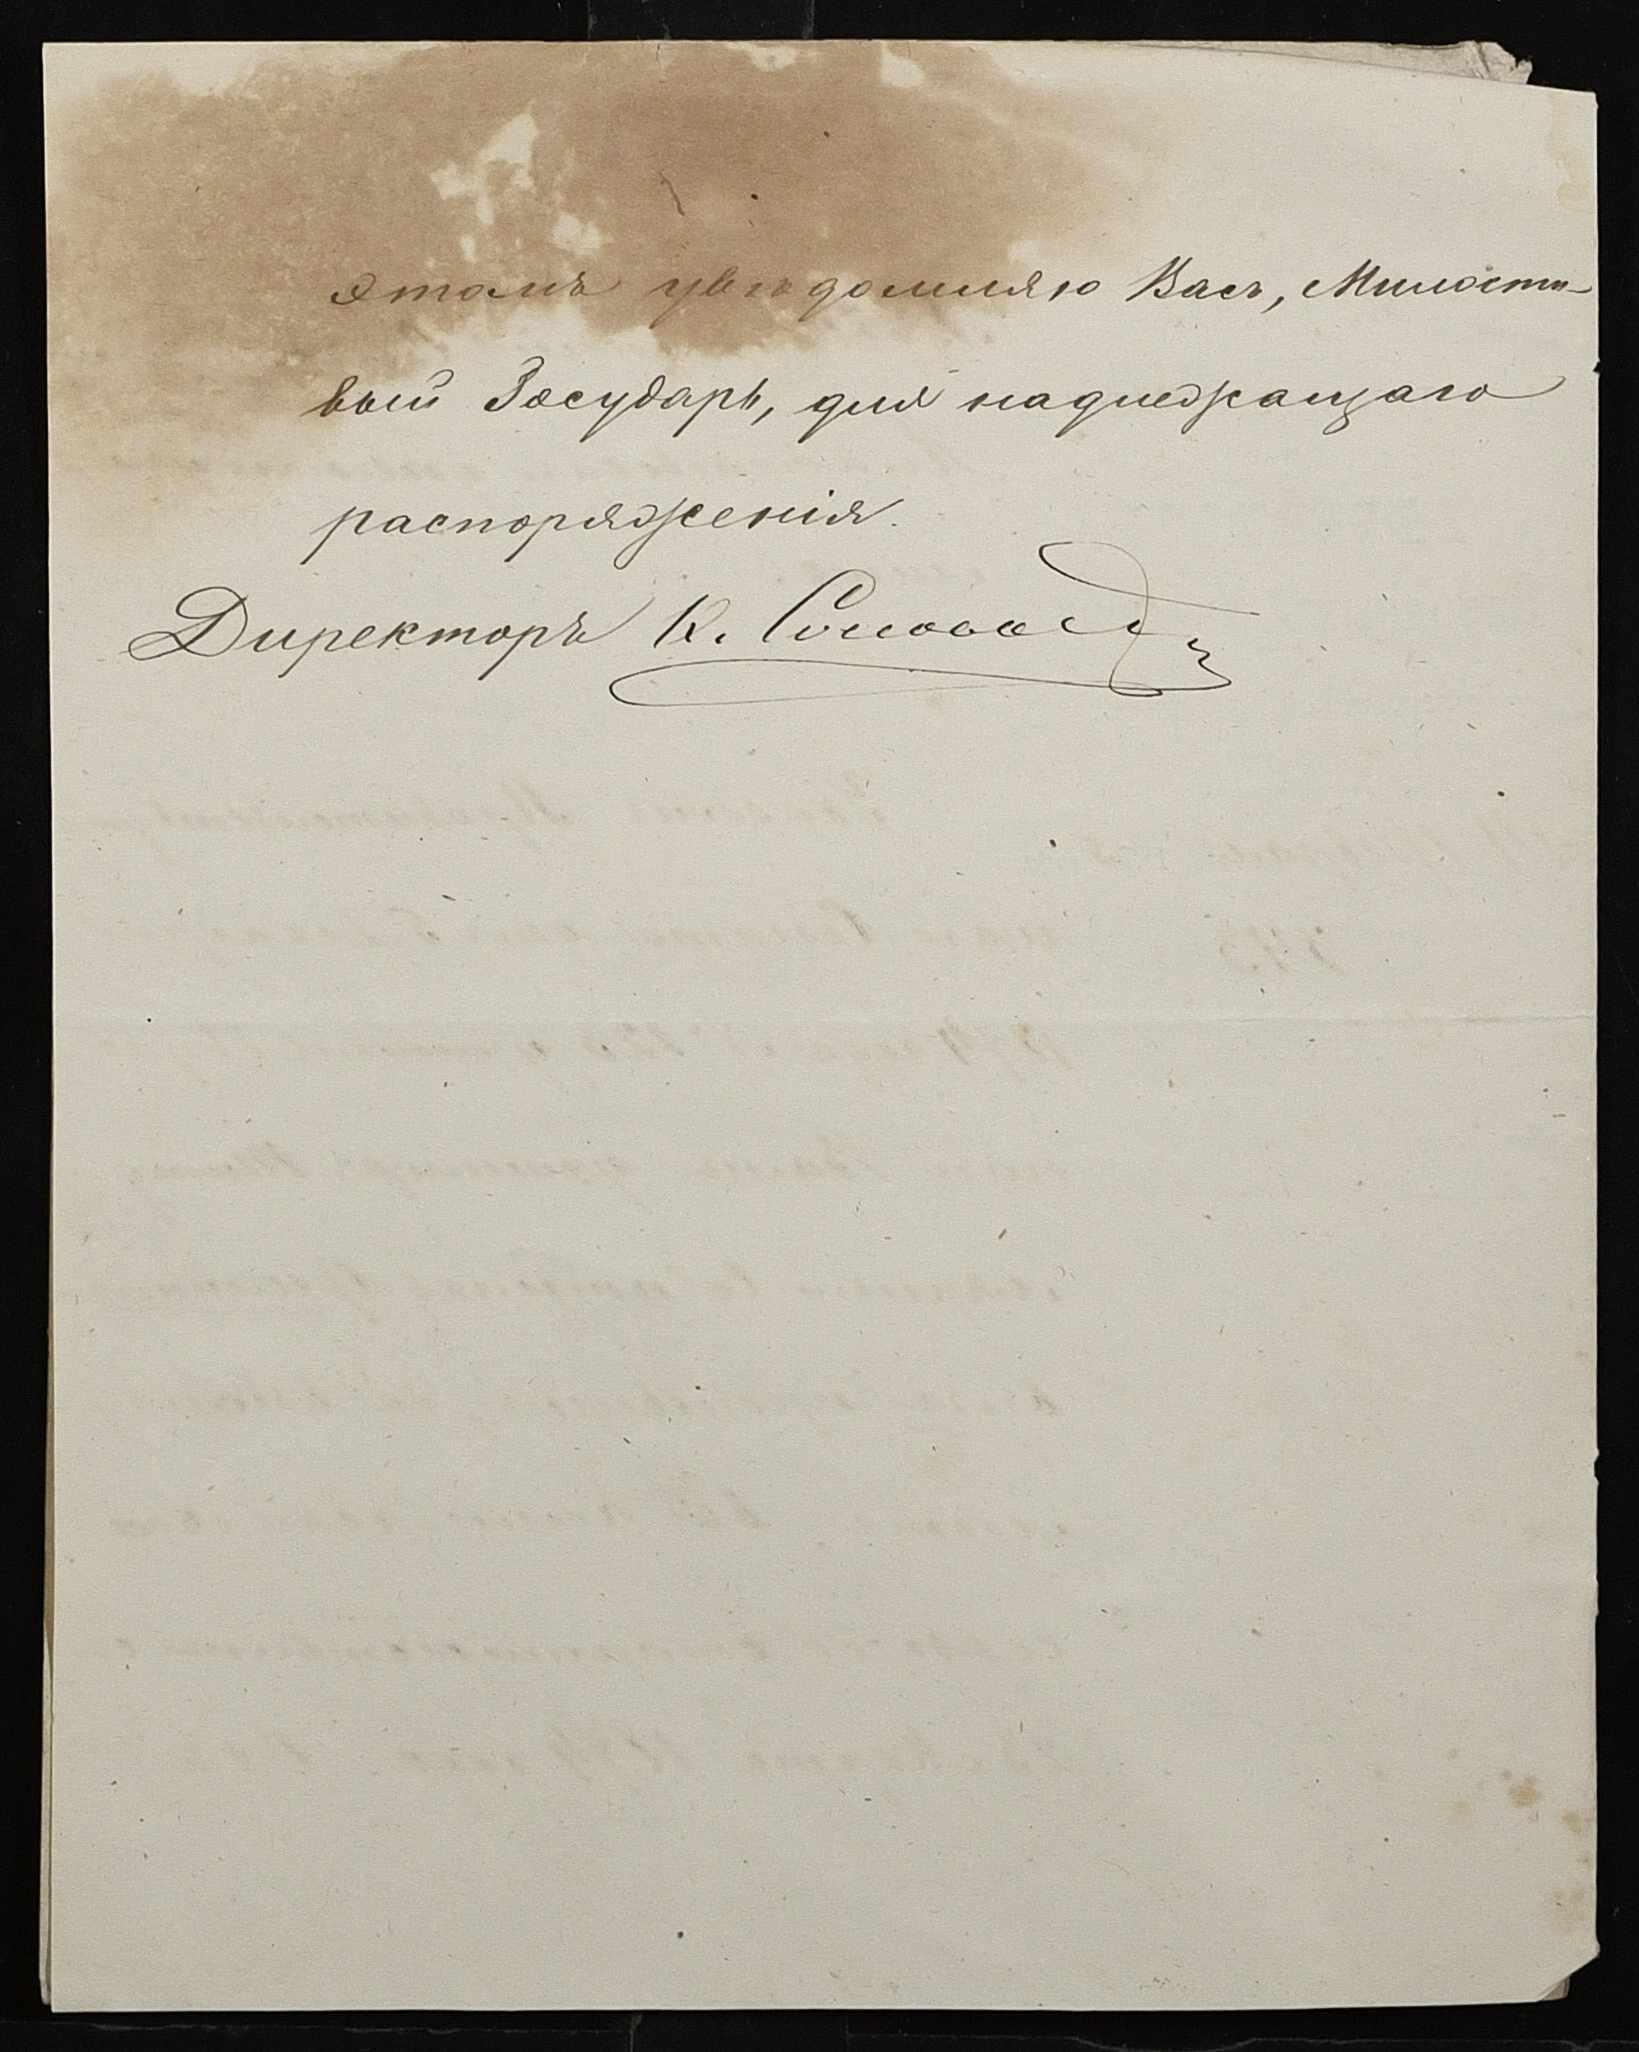 этомъ увѣдомляю Васъ, Милости-
вый Государь, для надлежащаго
распоряженія.
Директоръ К.